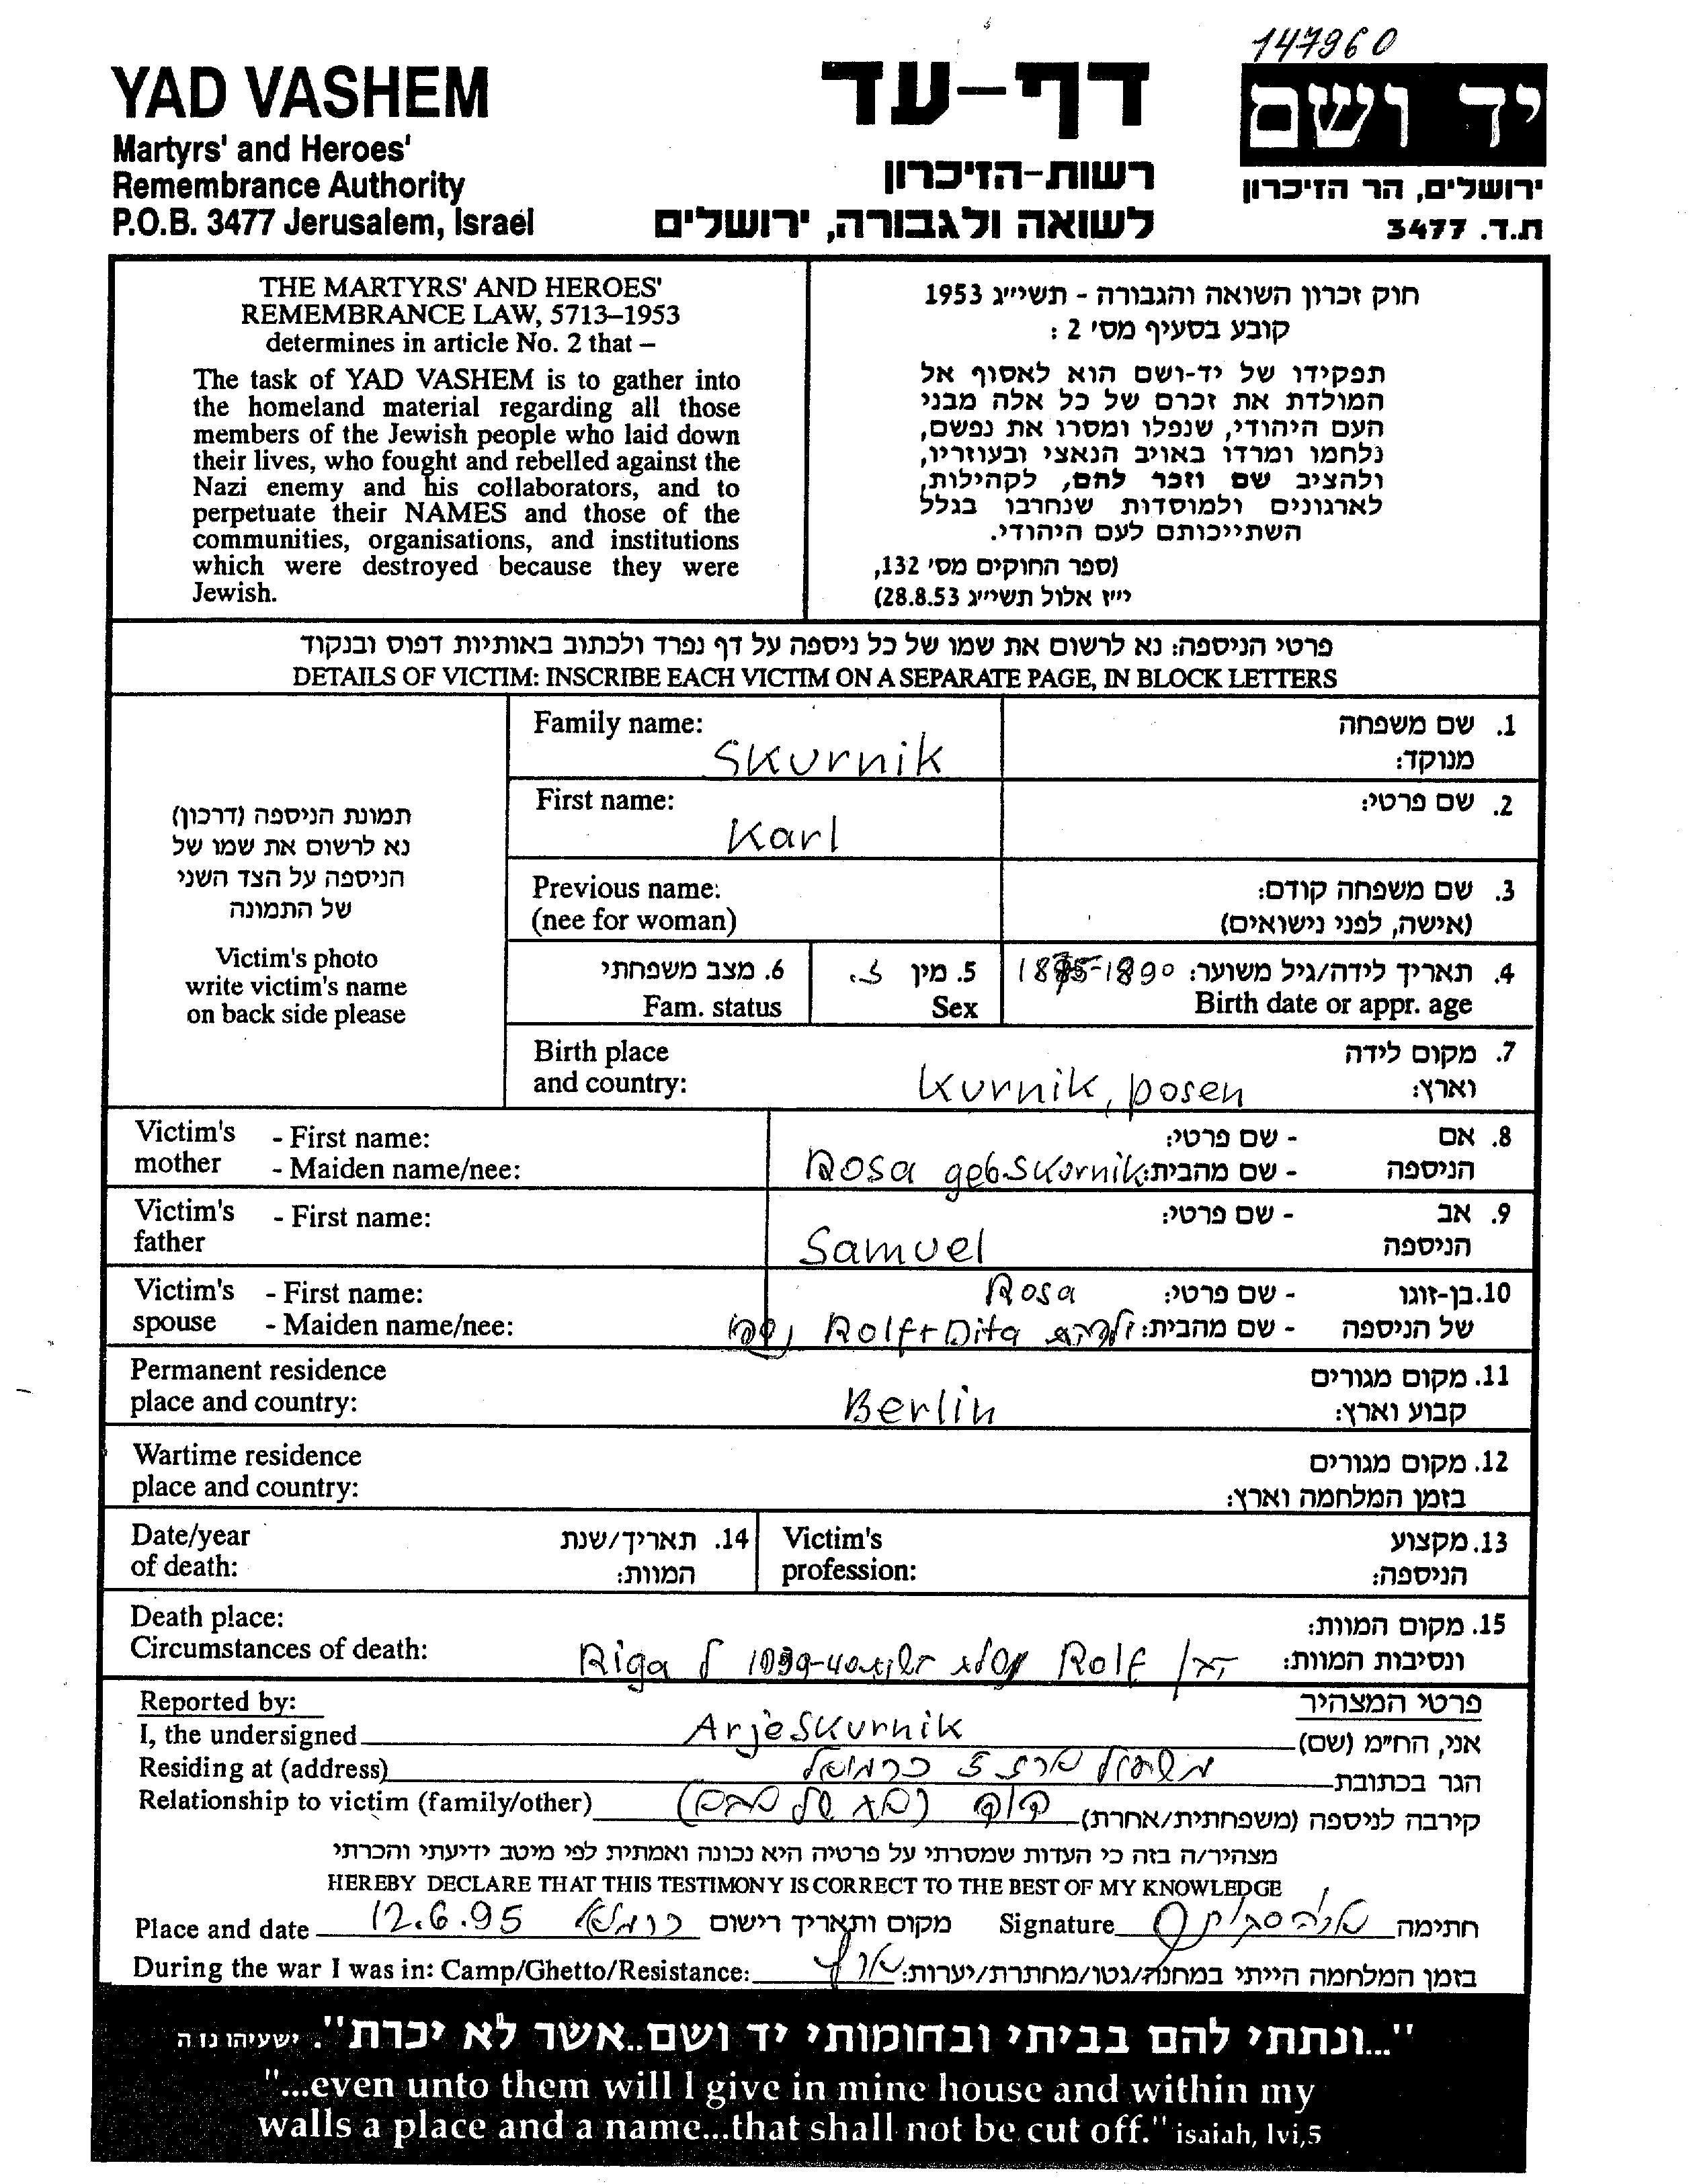 147960
YAD VASHEM
Martyrs' and Heroes'
Remembrance Authority
P.O.B. 3477 Jerusalem, Israel
דף-עד
רשות-הזיכרון
לשואה ולגבורה, ירושלים
יד ושם
ירושלים, הר הזיכרון
ת.ד. 3477
THE MARTYRS' AND HEROES'
REMEMBRANCE LAW, 5713–1953
determines in article No. 2 that –
The task of YAD VASHEM is to gather into
the homeland material regarding all those
members of the Jewish people who laid down
their lives, who fought and rebelled against the
Nazi enemy and his collaborators, and to
perpetuate their NAMES and those of the
communities, organisations, and institutions
which were destroyed because they were
Jewish.
חוק זכרון השואה והגבורה - תשי״ג 1953
קובע בסעיף מס׳ 2 :
תפקידו של יד-ושם הוא לאסוף אל
המולדת את זכרם של כל אלה מבני
העם היהודי, שנפלו ומסרו את נפשם,
נלחמו ומרדו באויב הנאצי ובעוזריו,
ולהציב שם וזכר להם, לקהילות,
לארגונים ולמוסדות שנחרבו בגלל
השתייכותם לעם היהודי.
(ספר החוקים מס׳ 132,
י״ז אלול תשי״ג 28.8.53)
פרטי הניספה: נא לרשום את שמו של כל ניספה על דף נפרד ולכתוב באותיות דפוס ובנקוד
DETAILS OF VICTIM: INSCRIBE EACH VICTIM ON A SEPARATE PAGE, IN BLOCK LETTERS
תמונת הניספה (דרכון)
נא לרשום את שמו של
הניספה על הצד השני
של התמונה
Victim's photo
write victim's name
on back side please
Family name: 1. שם משפחה
Skurnik מנוקד:
First name: 2. שם פרטי:
Karl
Previous name: 3. שם משפחה קודם:
(nee for woman) (אישה, לפני נישואים)
6. מצב משפחתי 5. מין ז. 4. תאריך לידה/גיל משוער: 1885-1890
Fam. status Sex Birth date or appr. age
Birth place 7. מקום לידה
and country: Kurnik, posen וארץ:
Victim's - First name: - שם פרטי: 8. אם
mother - Maiden name/nee: Rosa geb Skurnik - שם מהבית: הניספה
Victim's - First name: - שם פרטי: 9. אב
father Samuel הניספה
Victim's - First name: Rosa - שם פרטי: 10. בן-זוגו
spouse - Maiden name/nee: Rolf + Dita - שם מהבית: של הניספה
Permanent residence 11. מקום מגורים
place and country: Berlin קבוע וארץ:
Wartime residence 12. מקום מגורים
place and country: בזמן המלחמה וארץ:
Date/year 14. תאריך/שנת Victim's 13. מקצוע
of death: המוות: profession: הניספה:
Death place: 15. מקום המוות:
Circumstances of death: ונסיבות המוות: הבן Rolf ל Riga
Reported by: פרטי המצהיר
I, the undersigned Arje Skurnik אני, הח״מ (שם)
Residing at (address) כרמיאל הגר בכתובת
Relationship to victim (family/other) קרוב קירבה לניספה (משפחתית/אחרת)
מצהיר/ה בזה כי העדות שמסרתי על פרטיה היא נכונה ואמתית לפי מיטב ידיעתי והכרתי
HEREBY DECLARE THAT THIS TESTIMONY IS CORRECT TO THE BEST OF MY KNOWLEDGE
Place and date 12.6.95 כרמיאל מקום ותאריך רישום Signature חתימה
During the war I was in: Camp/Ghetto/Resistance: בזמן המלחמה הייתי במחנה/גטו/מחתרת/יערות:
"...ונתתי להם בביתי ובחומותי יד ושם..אשר לא יכרת". ישעיהו נו ה
"...even unto them will I give in mine house and within my
walls a place and a name...that shall not be cut off." isaiah, lvi,5